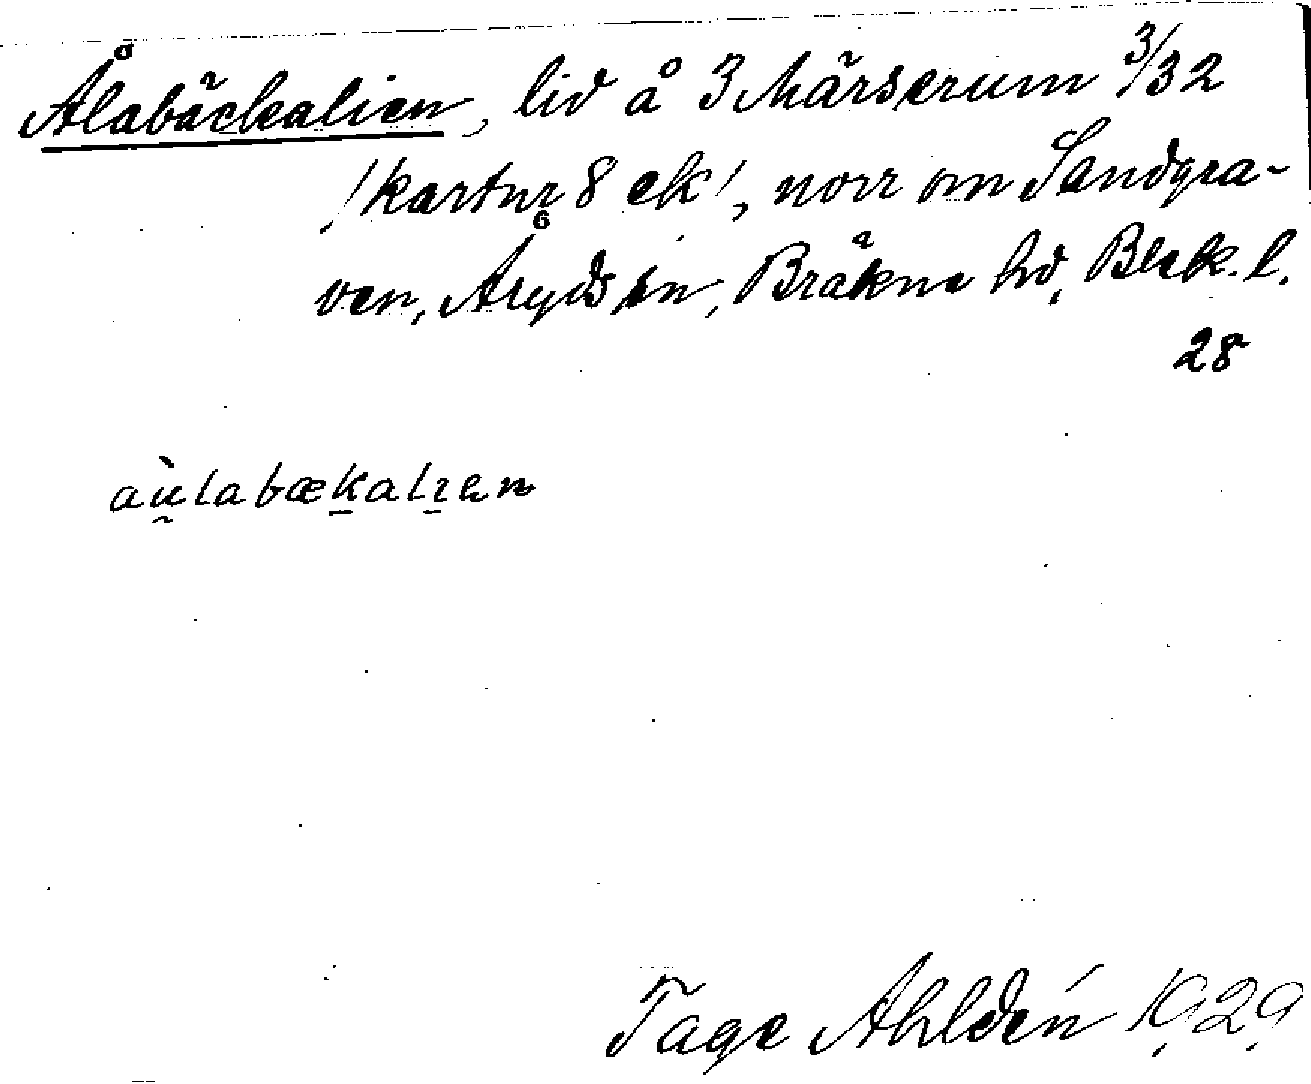 Ålabäckalien, lid å 3 Märserum 3/32
/kartnr 8 ek/, norr om Sandgra-
ven, Åryds sn, Bräkne hd, Blek. l.
28
aùlabækalien
Tage Ahldén 1929